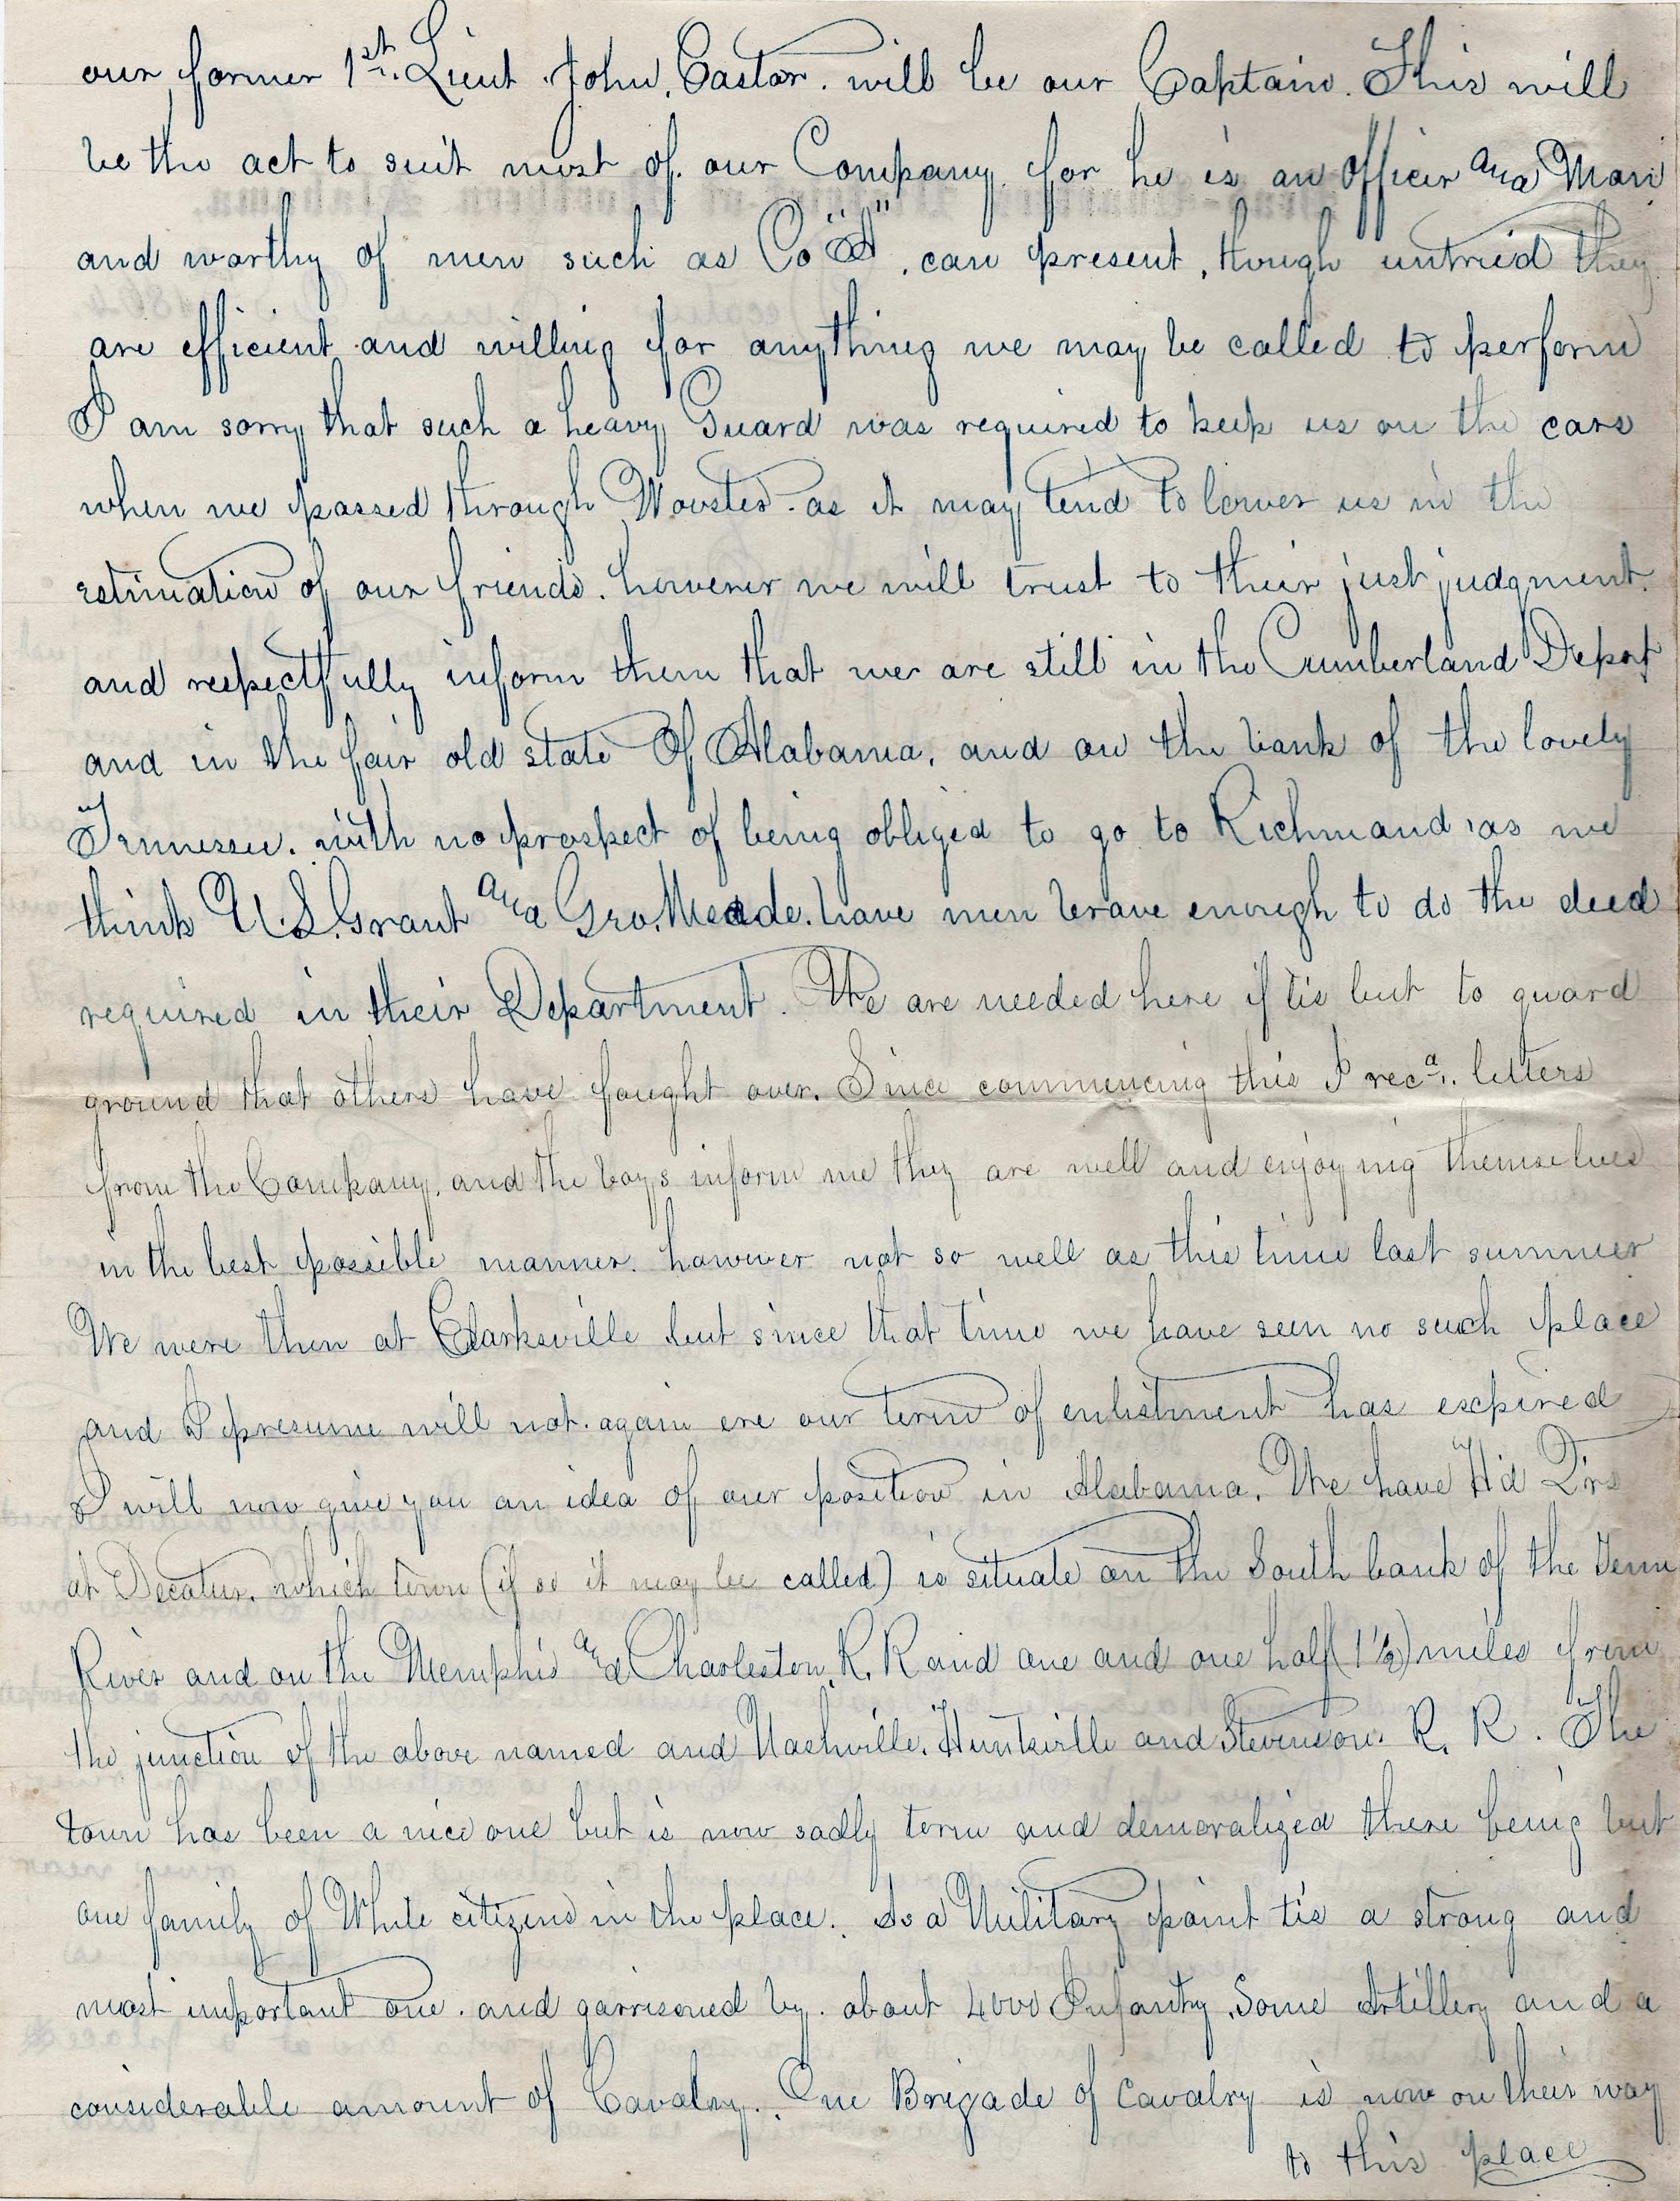 our former 1st. Lieut. John, Castor. will be our Captain. This will
be the act to suit most of. our Company. for he is an officer and Man
and worthy of men such as Co "A". can present, though untried they
are efficient and willing for anything we may be called to perform
I am sorry that such a heavy Guard was required to keep us on the cars
when we passed through Wooster. as it may tend to lower us in the
estimation of our friends. however we will trust to their just judgment.
and respectfully inform them that we are still in the Cumberland Depart
and in the fair old state Of Alabama, and on the bank of the lovely
Tennessee. with no prospect of being obliged to go to Richmond, as we
think U.S. Grant and Geo. Meade. have men brave enough to do the deed
required in their Department. We are needed here if tis but to guard
ground that others have fought over. Since commencing this I recd. letters
from the Company, and the boys inform me they are well and enjoying themselves
in the best possible manner. however not so well as this time last summer
We were then at Clarksville but since that time we have seen no such place
and I presume will not. again ere our term of enlistment has expired
I will now give you an idea of our position in Alabama. We have H'd Q'rs
at Decatur. which town (if so it may be called) is situate on the South bank of the Tenn
River and on the Memphis and Charleston. R. R and one and one half (1 1/2) miles from
the junction of the above named and Nashville, Huntsville and Stevenson. R. R. The
town has been a nice one but is now sadly torn and demoralized there being but
one family of White citizens in the place. As a Military point tis a strong and
most important one. and garrisoned by. about 4000 Infantry. Some Artillery and a
considerable amount of Cavalry. One Brigade of Cavalry is now on their way
to this place